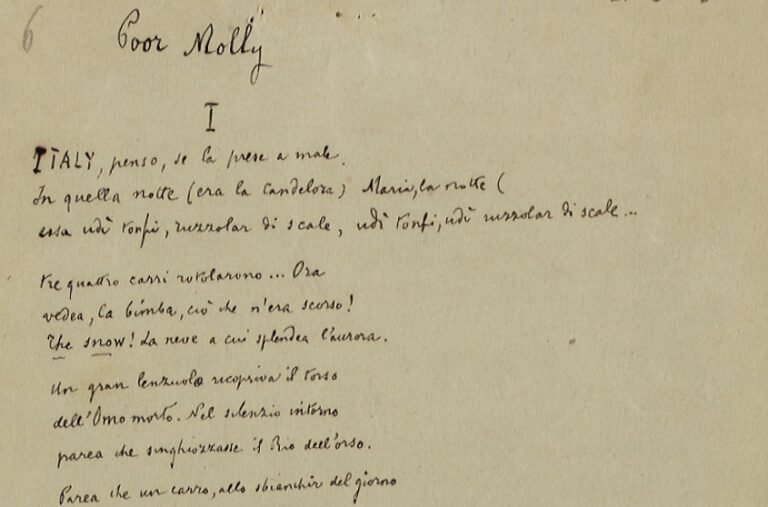 6
Poor Molly
I
ITALY, penso, se la prese a male.
In quella notte (era la Candelora) Maria, la notte (
essa udì tonfi, ruzzolar di scale, udì tonfi, udì ruzzolar di scale...
tre quattro carri rotolarono... Ora
vedea, la bimba, ciò che n'era scorso!
the snow! la neve a cui splendea l'aurora.
Un gran lenzuolo ricopriva il torso
dell'Omo morto. Nel silenzio intorno
parea che singhiozzasse il Rio dell'orso.
Parea che un carro, allo sbianchir del giorno